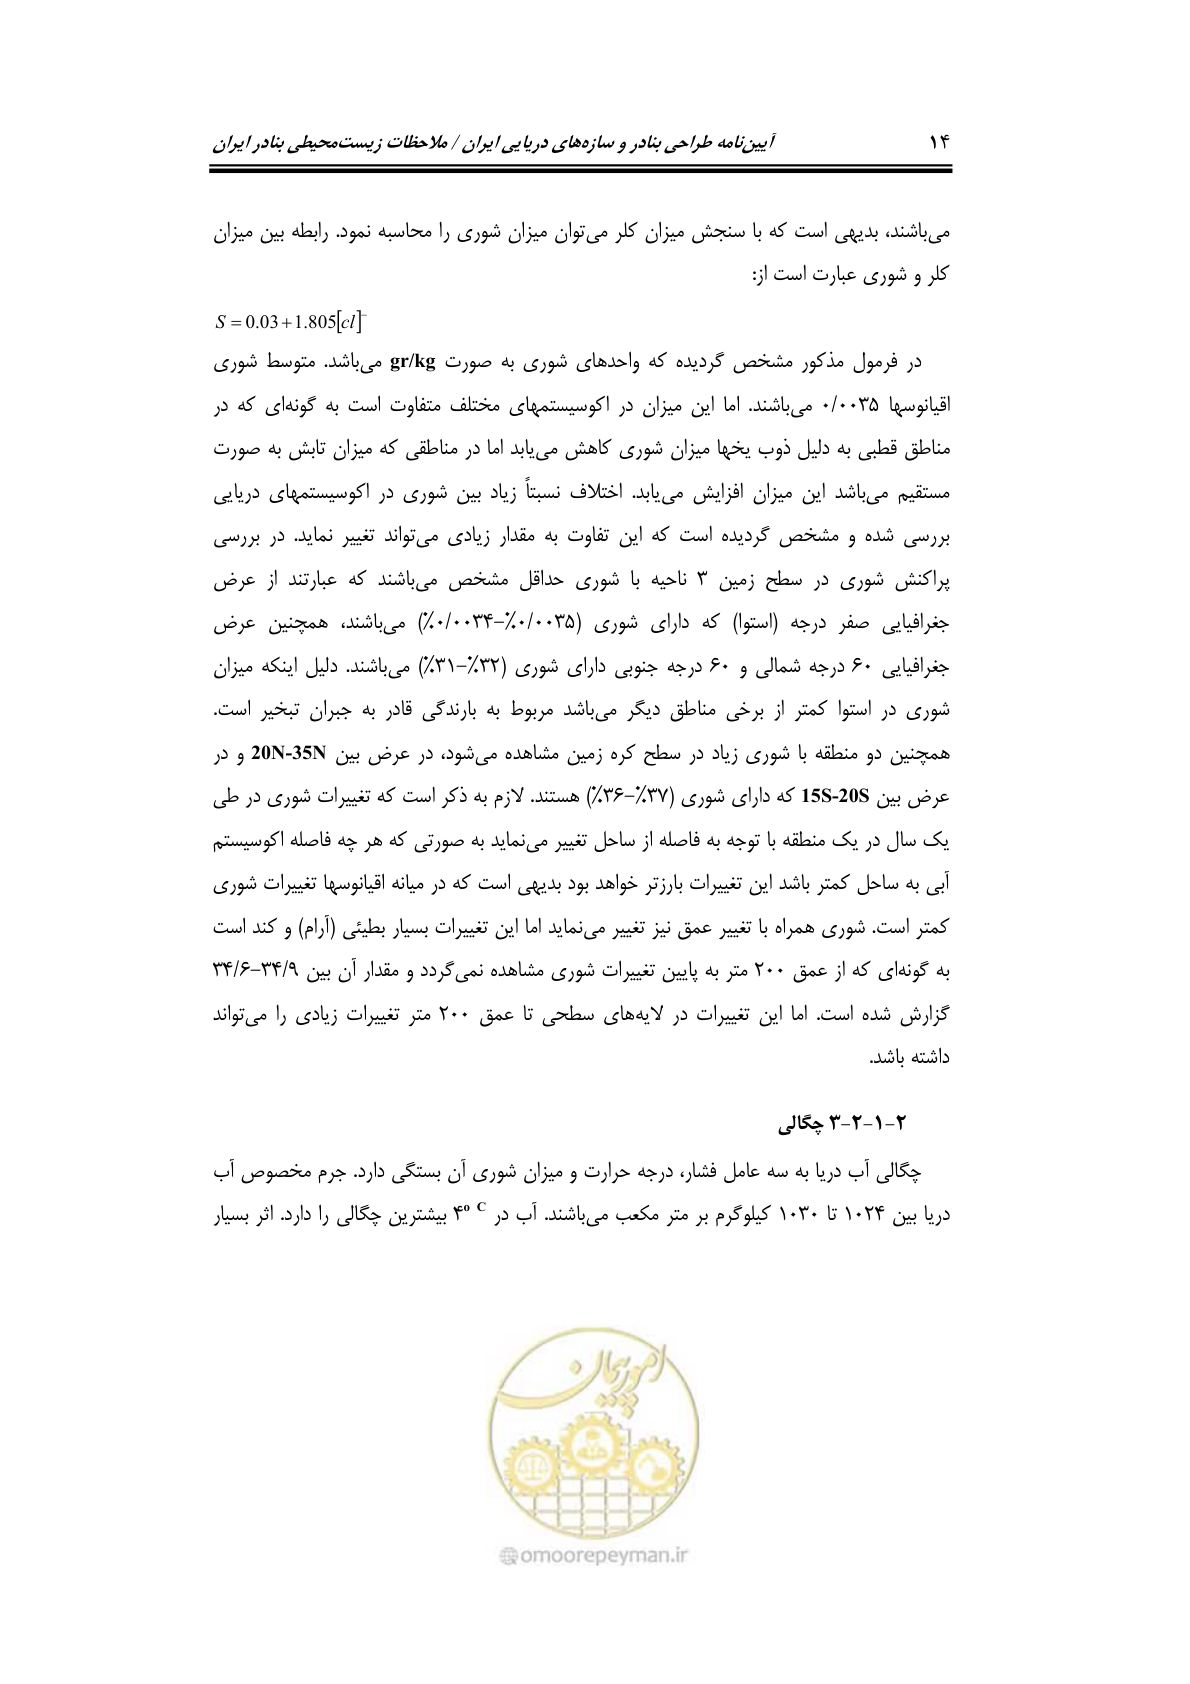 ۱۴ آیین‌نامه طراحی بنادر و سازه‌های دریایی ایران / ملاحظات زیست‌محیطی بنادر ایران
می‌باشند، بدیهی است که با سنجش میزان کلر می‌توان میزان شوری را محاسبه نمود. رابطه بین میزان
کلر و شوری عبارت است از:
S = 0.03 + 1.805[cl]⁻
در فرمول مذکور مشخص گردیده که واحدهای شوری به صورت gr/kg می‌باشد. متوسط شوری
اقیانوسها ۰/۰۰۳۵ می‌باشند. اما این میزان در اکوسیستمهای مختلف متفاوت است به گونه‌ای که در
مناطق قطبی به دلیل ذوب یخها میزان شوری کاهش می‌یابد اما در مناطقی که میزان تابش به صورت
مستقیم می‌باشد این میزان افزایش می‌یابد. اختلاف نسبتاً زیاد بین شوری در اکوسیستمهای دریایی
بررسی شده و مشخص گردیده است که این تفاوت به مقدار زیادی می‌تواند تغییر نماید. در بررسی
پراکنش شوری در سطح زمین ۳ ناحیه با شوری حداقل مشخص می‌باشند که عبارتند از عرض
جغرافیایی صفر درجه (استوا) که دارای شوری (۰/۰۰۳۵٪-۰/۰۰۳۴٪) می‌باشند، همچنین عرض
جغرافیایی ۶۰ درجه شمالی و ۶۰ درجه جنوبی دارای شوری (۳۲٪-۳۱٪) می‌باشند. دلیل اینکه میزان
شوری در استوا کمتر از برخی مناطق دیگر می‌باشد مربوط به بارندگی قادر به جبران تبخیر است.
همچنین دو منطقه با شوری زیاد در سطح کره زمین مشاهده می‌شود، در عرض بین 20N-35N و در
عرض بین 15S-20S که دارای شوری (۳۷٪-۳۶٪) هستند. لازم به ذکر است که تغییرات شوری در طی
یک سال در یک منطقه با توجه به فاصله از ساحل تغییر می‌نماید به صورتی که هر چه فاصله اکوسیستم
آبی به ساحل کمتر باشد این تغییرات بارزتر خواهد بود بدیهی است که در میانه اقیانوسها تغییرات شوری
کمتر است. شوری همراه با تغییر عمق نیز تغییر می‌نماید اما این تغییرات بسیار بطیئی (آرام) و کند است
به گونه‌ای که از عمق ۲۰۰ متر به پایین تغییرات شوری مشاهده نمی‌گردد و مقدار آن بین ۳۴/۹-۳۴/۶
گزارش شده است. اما این تغییرات در لایه‌های سطحی تا عمق ۲۰۰ متر تغییرات زیادی را می‌تواند
داشته باشد.
۲-۱-۲-۳ چگالی
چگالی آب دریا به سه عامل فشار، درجه حرارت و میزان شوری آن بستگی دارد. جرم مخصوص آب
دریا بین ۱۰۲۴ تا ۱۰۳۰ کیلوگرم بر متر مکعب می‌باشند. آب در ۴º C بیشترین چگالی را دارد. اثر بسیار
امورپیمان
omoorepeyman.ir